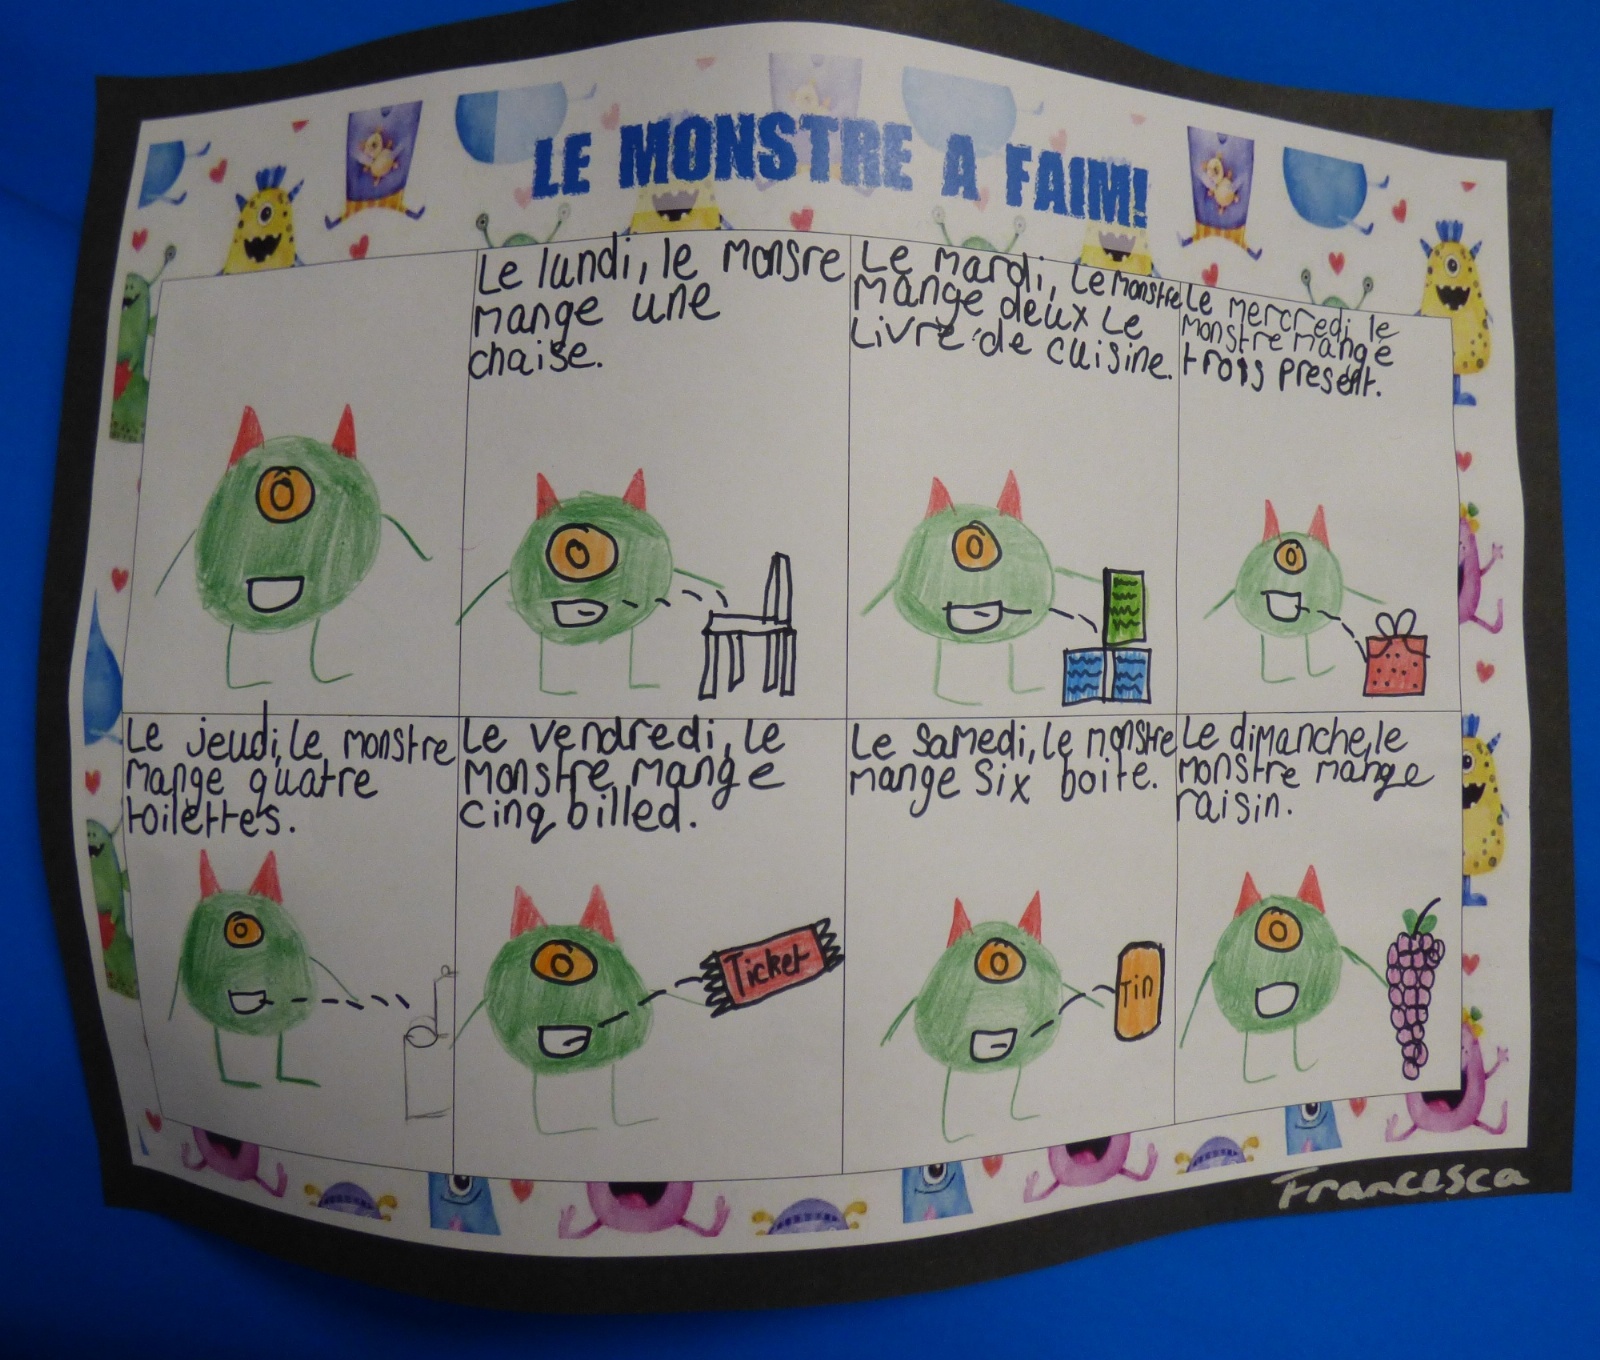 LE MONSTRE A FAIM!
Le lundi, le monsre
mange une
chaise.
Le mardi, Le monstre
mange deux Le
Livre de cuisine.
Le mercredi, le
monstre mange
trois present.
Le jeudi, Le monstre
mange quatre
toilettes.
Le vendredi, Le
monstre mange
cinq billed.
Ticket
Le samedi, Le monstre
mange six boite.
Tin
Le dimanche, le
monstre mange
raisin.
Francesca